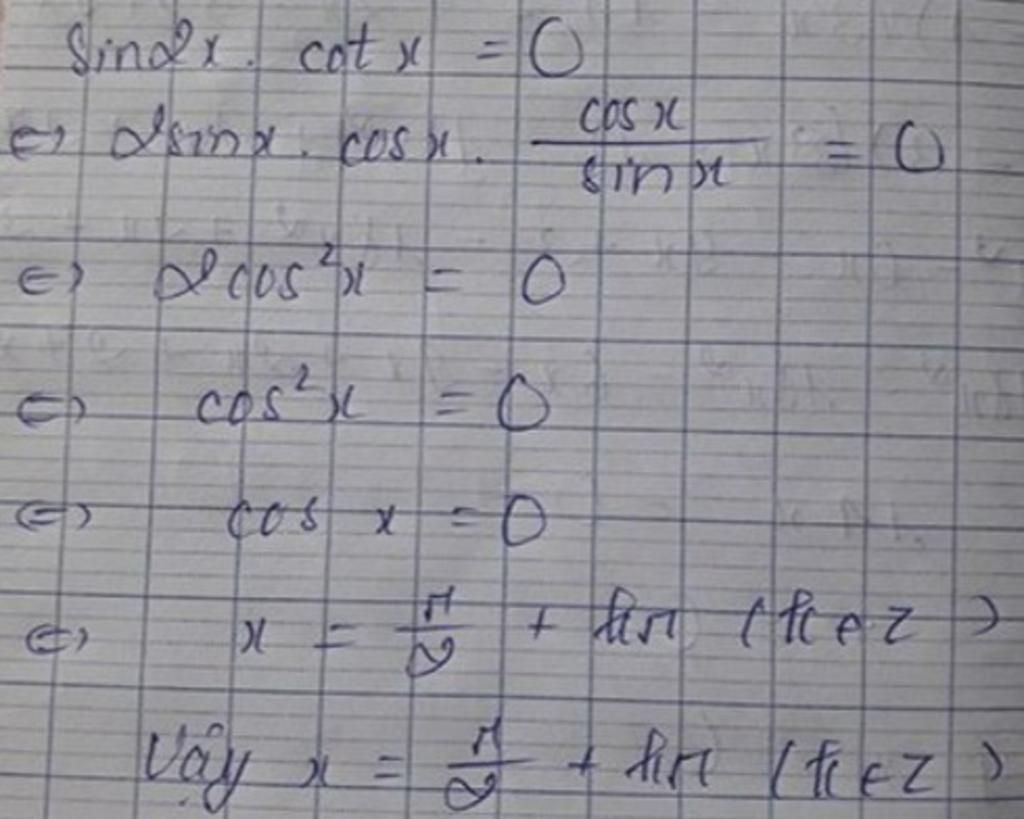 sin2x . cot x = 0
⇔ 2sinx . cosx . cosx / sinx = 0
⇔ 2cos²x = 0
⇔ cos²x = 0
⇔ cos x = 0
⇔ x = π/2 + kπ (k ∈ Z)
Vậy x = π/2 + kπ (k ∈ Z)